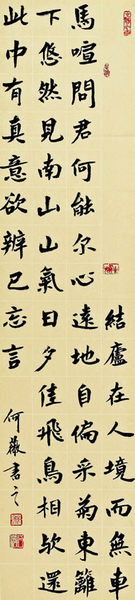 結廬在人境而無車
馬喧問君何能尔心遠地自偏采菊東籬
下悠然見南山山氣日夕佳飛鳥相與還
此中有真意欲辨已忘言
何薇書之